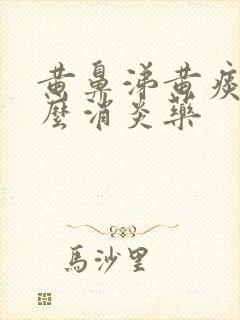 黄鼻涕黄痰
麼消炎藥
馬沙里